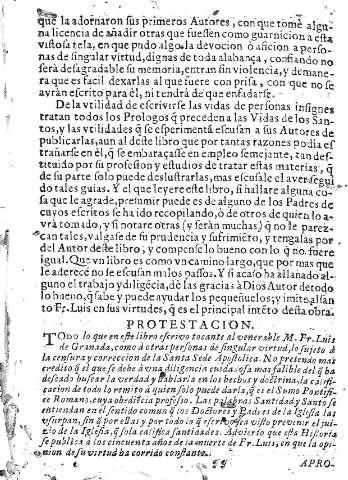 que la adornaron sus primeros Autores, con que tomè algu-
na licencia de añadir otras que fuessen como guarnicion a esta
vistosa tela, en que pudo algo la devocion ò aficion a perso-
nas de singular virtud, dignas de toda alabança, confiando no
serà desagradable su memoria, entran sin violencia, y de mane-
ra que es facil dexarlas al que fuere con prisa, con que no se
avràn escrito para èl, ni tendrà de que enfadarse.
De la vtilidad de escrivirse las vidas de personas insignes
tratan todos los Prologos q̃ preceden a las Vidas de los San-
tos, y las vtilidades q̃ se esperimentã escusan a sus Autores de
publicarlas, aun al deste libro que por tantas razones podia es-
trañarse en èl, q̃ se embaraçasse en empleo semejante, tan des-
tituido por su profession y estudios de tratar estas materias, q̃
de su parte solo puede deslustrarlas, mas escusale el aver segui
do tales guias. Y el que leyere este libro, si hallare alguna co-
sa que le agrade, presumir puede es de alguno de los Padres de
cuyos escritos se ha ido recopilando, ò de otros de quien lo a-
vrà tomado, y si notare otras (y seràn muchas) q̃ no le parez-
can tales, valgase de su prudencia y sufrimiẽto, y tengalas por
del Autor deste libro, y compense lo bueno con lo q̃ no fuere
igual. Que vn libro es como vn camino largo, que por mas que
le aderecẽ no se escusan malos passos. Y si acaso ha allanado al-
guno el trabajo y diligẽcia, dè las gracias à Dios Autor de todo
lo bueno, q̃ sabe y puede ayudar los pequeñuelos; y imite, assi al sãn
to Fr. Luis en sus virtudes, q̃ es el principal intẽto desta obra.
PROTESTACION.
TOdo lo que en este libro escrivo tocante al venerable M. Fr. Luis
de Granada, como à otras personas de singular virtud, lo sujeto à
la censura y correccion de la Santa Sede Apostolica. No pretendo mas
credito q̃ el que se debe à vna diligencia cuidadosa mas falible del q̃ ha
deseado buscar la verdad y hablarla en los hechos y doctrina, la califi-
cacion de todo lo remito à quien solo puede darla, q̃ es el Sumo Pontifi-
ce Romano, cuya obediẽcia professo. Las palabras Santidad y Santo se
entiendan en el sentido comun q̃ los Doctores y Padres de la Iglesia las
vsurpan, sin q̃ por ellas y por todo lo q̃ escrivo sea visto prevenir el jui-
zio de la Iglesia, q̃ sola califica santidades. Advierto que esta Historia
se publica à los cincuenta años de la muerte de Fr. Luis, en que la opi-
nion de su virtud ha corrido constante.
APRO-